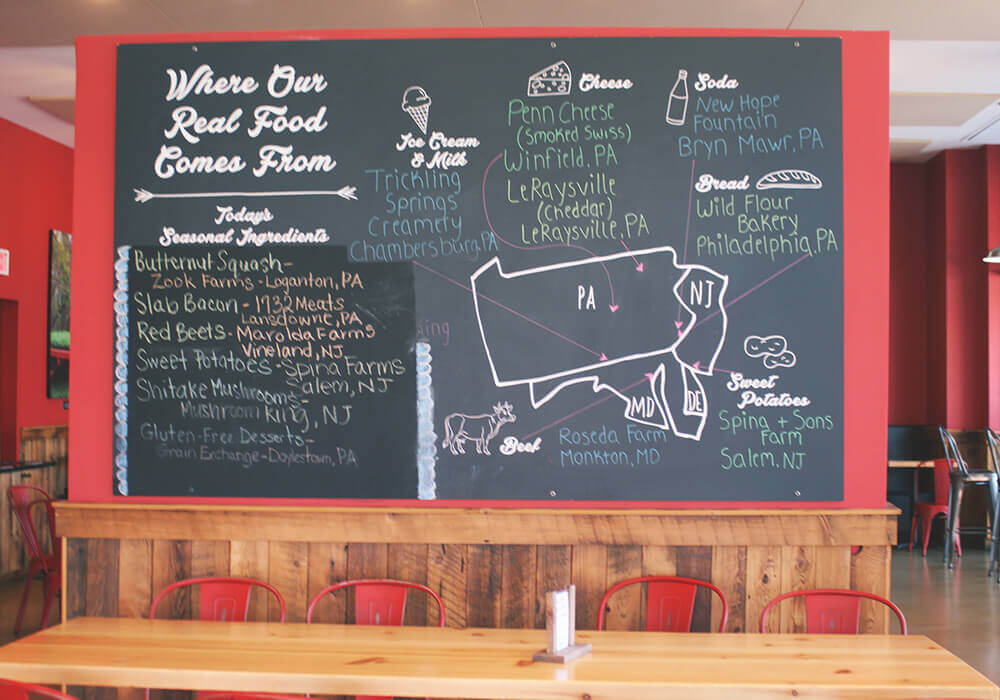 Where Our
Real Food
Comes From
Today's
Seasonal Ingredients
Butternut Squash-
Zook Farms - Loganton, PA
Slab Bacon - 1932 Meats
Lansdowne, PA
Red Beets - Marolda Farms
Vineland, NJ
Sweet Potatoes - Spina Farms
Salem, NJ
Shitake Mushrooms -
Mushroom King, NJ
Gluten-Free Desserts-
Grain Exchange - Doylestown, PA
Ice Cream
& Milk
Trickling
Springs
Creamery
Chambersburg, PA
Cheese
Penn Cheese
(Smoked Swiss)
Winfield, PA
LeRaysville
(Cheddar)
LeRaysville, PA
Soda
New Hope
Fountain
Bryn Mawr, PA
Bread
Wild Flour
Bakery
Philadelphia, PA
PA
NJ
MD
DE
Sweet
Potatoes
Spina + Sons
Farm
Salem, NJ
Beef
Roseda Farm
Monkton, MD